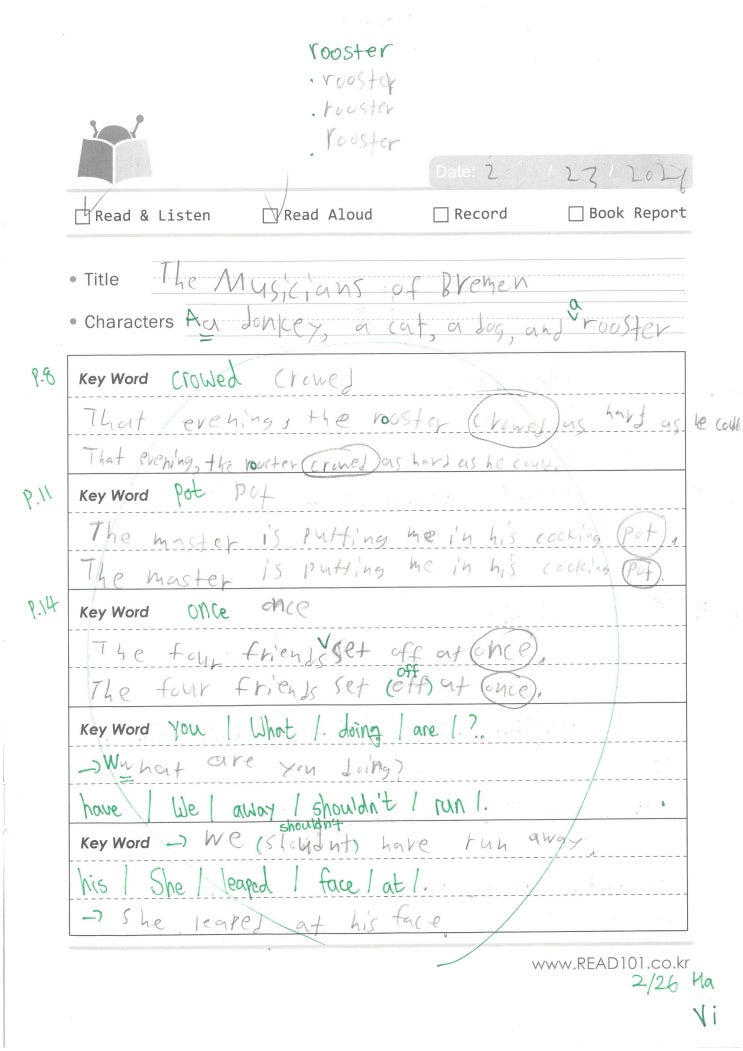 rooster
. rooster
. rooster
. rooster
Date: 2 / 23 / 2026
Read & Listen Read Aloud Record Book Report
• Title The Musicians of Bremen
• Characters Aa donkey, a cat, a dog, and a rooster
P.8 Key Word crowed crowed
That evening, the rooster crowed as hard as he could
That evening, the rooster crowed as hard as he could.
P.11 Key Word pot pot
The master is putting me in his cooking pot.
The master is putting me in his cooking pot.
P.14 Key Word once once
The four friends set off at once.
off
The four friends set (off) at once.
Key Word you / What / doing / are / ?
→ Wwhat are you doing?
have / We / away / shouldn't / run / .
shouldn't
Key Word → We ( ) have run away.
his / She / leaped / face / at / .
→ She leaped at his face.
www.READ101.co.kr
2/26 Ha
Vi